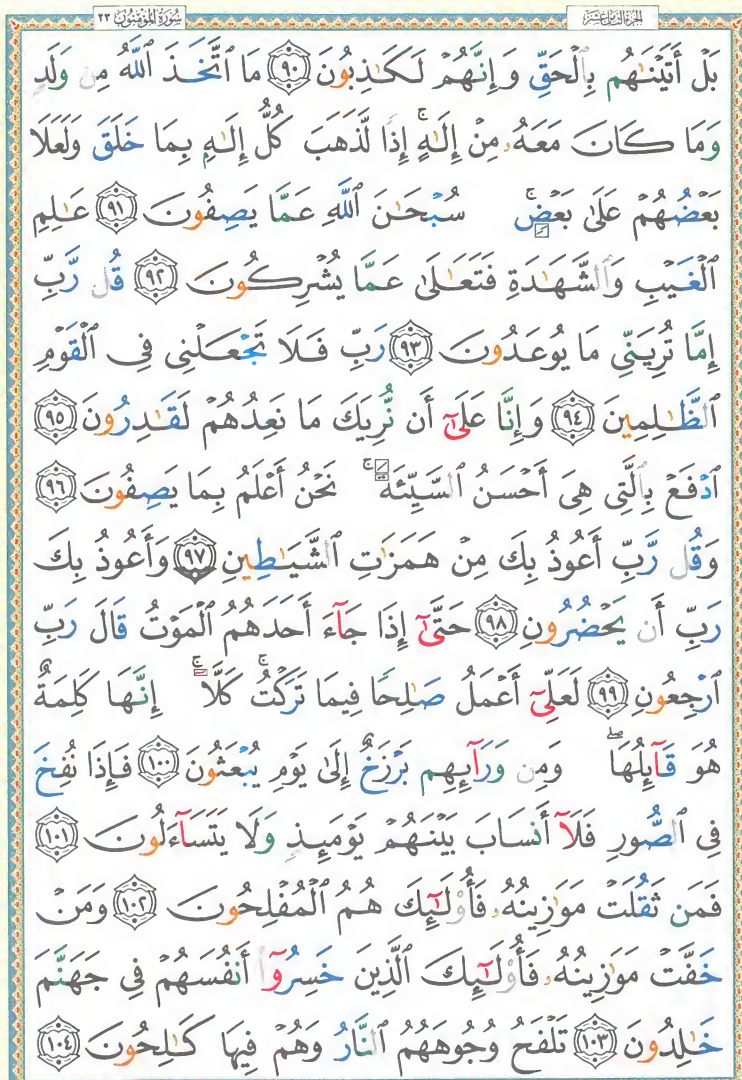 سُورَةُ المُؤۡمِنُونَ ٢٣
الجزء الثامن عشر
بَلۡ أَتَيۡنَٰهُم بِٱلۡحَقِّ وَإِنَّهُمۡ لَكَٰذِبُونَ ٩٠ مَا ٱتَّخَذَ ٱللَّهُ مِن وَلَدٖ
وَمَا كَانَ مَعَهُۥ مِنۡ إِلَٰهٍۚ إِذٗا لَّذَهَبَ كُلُّ إِلَٰهِۭ بِمَا خَلَقَ وَلَعَلَا
بَعۡضُهُمۡ عَلَىٰ بَعۡضٖۚ سُبۡحَٰنَ ٱللَّهِ عَمَّا يَصِفُونَ ٩١ عَٰلِمِ
ٱلۡغَيۡبِ وَٱلشَّهَٰدَةِ فَتَعَٰلَىٰ عَمَّا يُشۡرِكُونَ ٩٢ قُل رَّبِّ
إِمَّا تُرِيَنِّي مَا يُوعَدُونَ ٩٣ رَبِّ فَلَا تَجۡعَلۡنِي فِي ٱلۡقَوۡمِ
ٱلظَّٰلِمِينَ ٩٤ وَإِنَّا عَلَىٰٓ أَن نُّرِيَكَ مَا نَعِدُهُمۡ لَقَٰدِرُونَ ٩٥
ٱدۡفَعۡ بِٱلَّتِي هِيَ أَحۡسَنُ ٱلسَّيِّئَةَۚ نَحۡنُ أَعۡلَمُ بِمَا يَصِفُونَ ٩٦
وَقُل رَّبِّ أَعُوذُ بِكَ مِنۡ هَمَزَٰتِ ٱلشَّيَٰطِينِ ٩٧ وَأَعُوذُ بِكَ
رَبِّ أَن يَحۡضُرُونِ ٩٨ حَتَّىٰٓ إِذَا جَآءَ أَحَدَهُمُ ٱلۡمَوۡتُ قَالَ رَبِّ
ٱرۡجِعُونِ ٩٩ لَعَلِّيٓ أَعۡمَلُ صَٰلِحٗا فِيمَا تَرَكۡتُۚ كَلَّآۚ إِنَّهَا كَلِمَةٌ
هُوَ قَآئِلُهَاۖ وَمِن وَرَآئِهِم بَرۡزَخٌ إِلَىٰ يَوۡمِ يُبۡعَثُونَ ١٠٠ فَإِذَا نُفِخَ
فِي ٱلصُّورِ فَلَآ أَنسَابَ بَيۡنَهُمۡ يَوۡمَئِذٖ وَلَا يَتَسَآءَلُونَ ١٠١
فَمَن ثَقُلَتۡ مَوَٰزِينُهُۥ فَأُوْلَٰٓئِكَ هُمُ ٱلۡمُفۡلِحُونَ ١٠٢ وَمَنۡ
خَفَّتۡ مَوَٰزِينُهُۥ فَأُوْلَٰٓئِكَ ٱلَّذِينَ خَسِرُوٓاْ أَنفُسَهُمۡ فِي جَهَنَّمَ
خَٰلِدُونَ ١٠٣ تَلۡفَحُ وُجُوهَهُمُ ٱلنَّارُ وَهُمۡ فِيهَا كَٰلِحُونَ ١٠٤